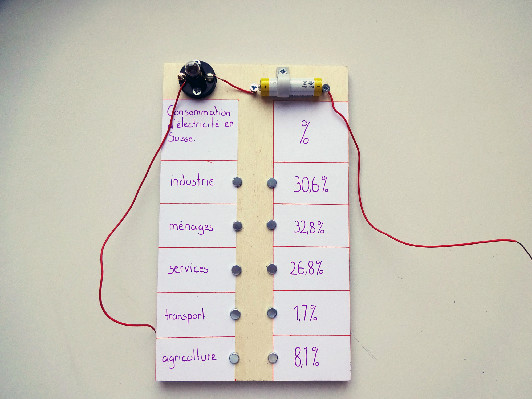 Consommation
d'électricité en
Suisse.
%
industrie 30,6%
ménages 32,8%
services 26,8%
transport 1,7%
agriculture 8,1%